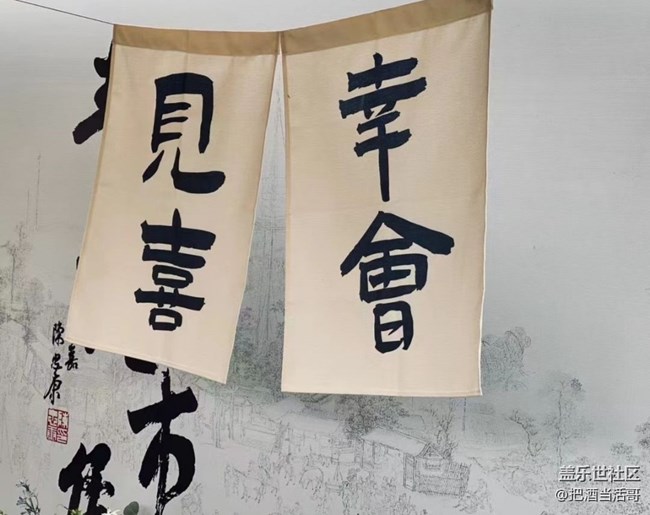 幸會
見喜
市
陳忠康
盖乐世社区
@把酒当活哥